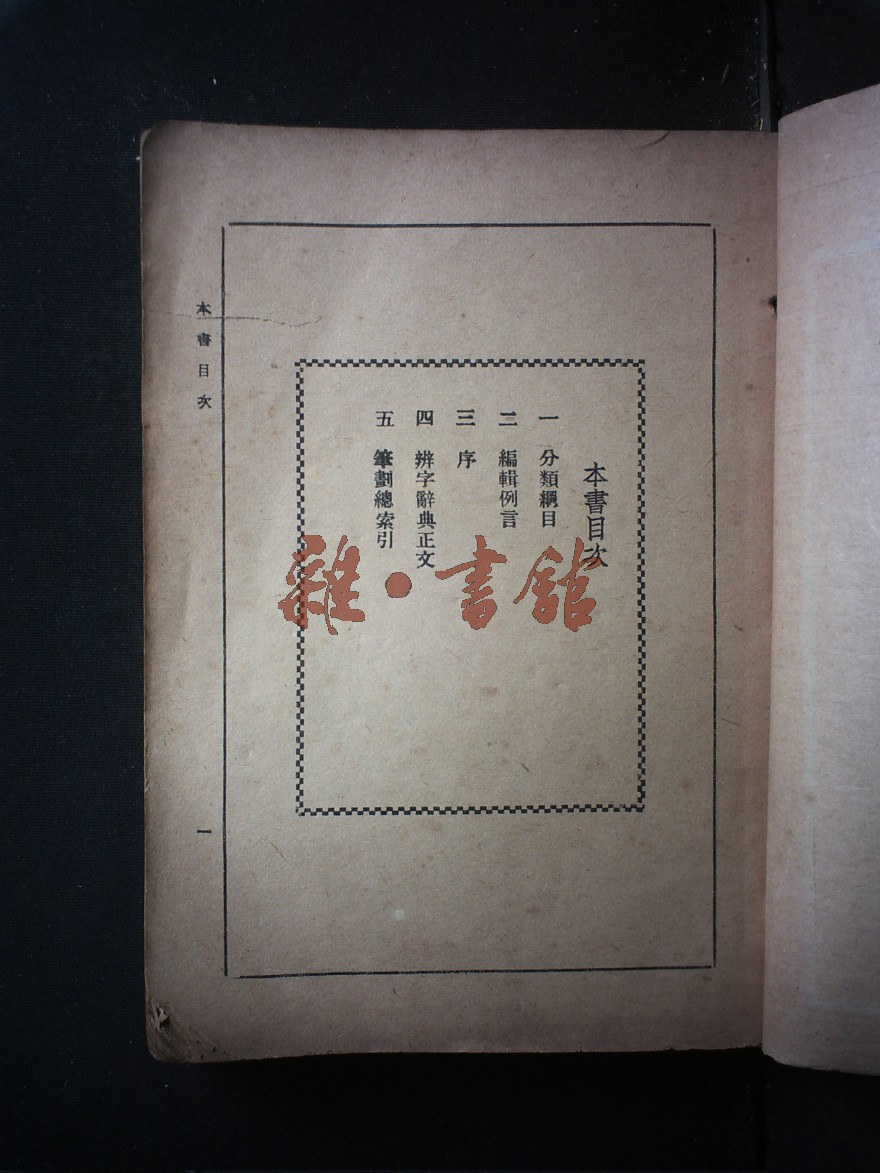 本書目次
一 分類綱目
二 編輯例言
三 序
四 辨字辭典正文
五 筆劃總索引
本書目次
一
雜·書館